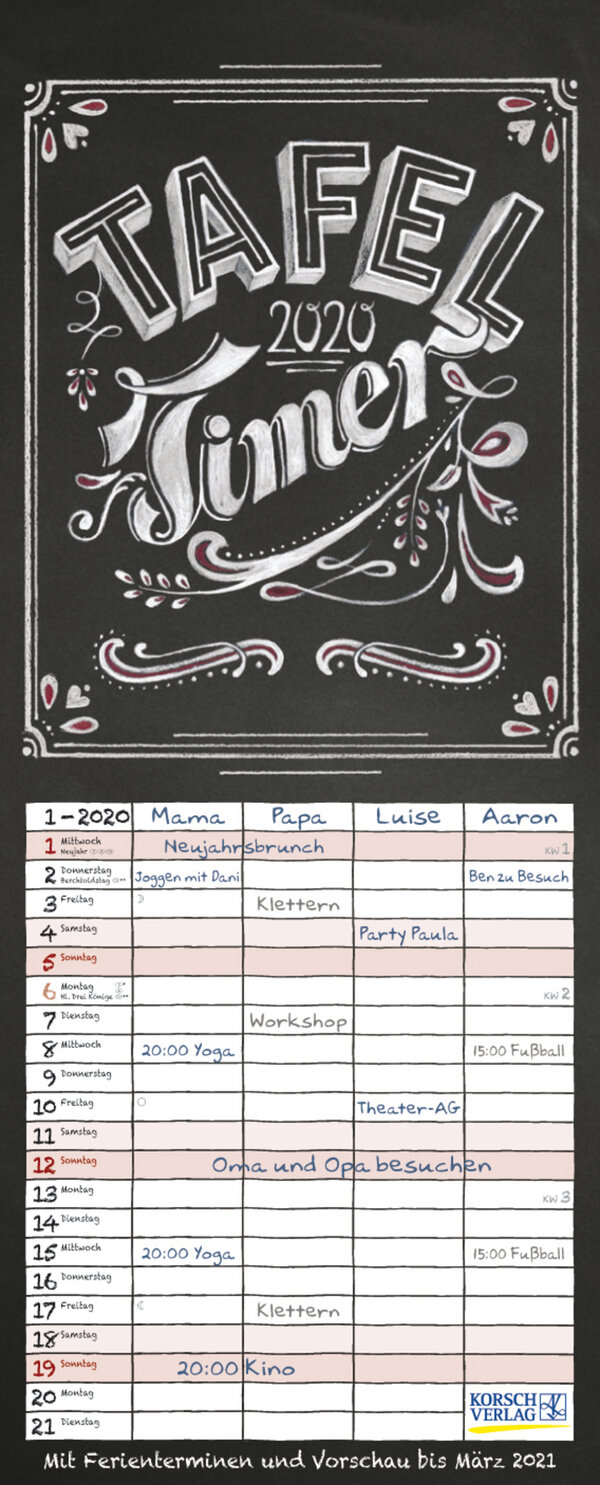 TAFEL
2020
Timer
1-2020 Mama Papa Luise Aaron
1 Mittwoch Neujahr Neujahrsbrunch KW 1
2 Donnerstag Berchtoldstag Joggen mit Dani Ben zu Besuch
3 Freitag Klettern
4 Samstag Party Paula
5 Sonntag
6 Montag Hl. Drei Könige KW 2
7 Dienstag Workshop
8 Mittwoch 20:00 Yoga 15:00 Fußball
9 Donnerstag
10 Freitag Theater-AG
11 Samstag
12 Sonntag Oma und Opa besuchen
13 Montag KW 3
14 Dienstag
15 Mittwoch 20:00 Yoga 15:00 Fußball
16 Donnerstag
17 Freitag Klettern
18 Samstag
19 Sonntag 20:00 Kino
20 Montag
21 Dienstag
KORSCH
VERLAG
Mit Ferienterminen und Vorschau bis März 2021